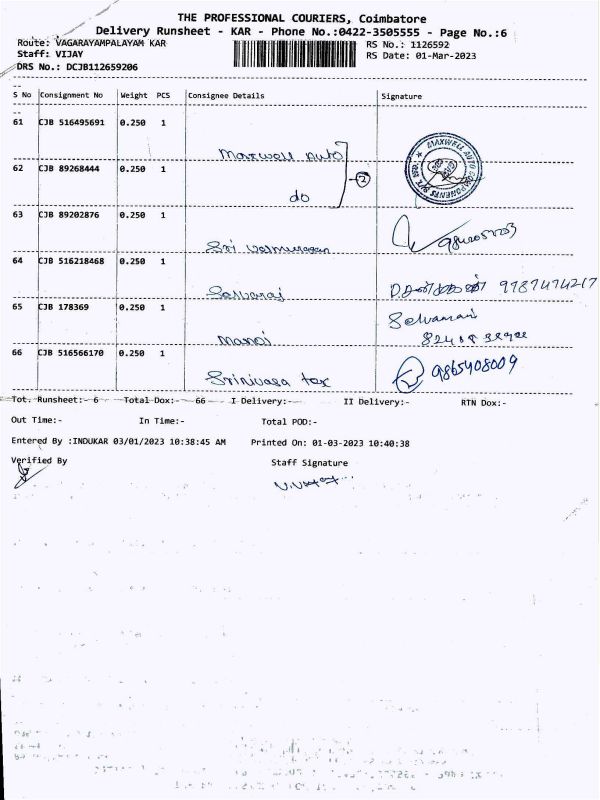 THE PROFESSIONAL COURIERS, Coimbatore
Delivery Runsheet - KAR - Phone No.:0422-3505555 - Page No.:6
Route: VAGARAYAMPALAYAM KAR RS No.: 1126592
Staff: VIJAY RS Date: 01-Mar-2023
DRS No.: DCJB112659206
S No Consignment No Weight PCS Consignee Details Signature
61 CJB 516495691 0.250 1
Maxwell Auto
MAXWELL AUTO COMPONENTS PVT.
62 CJB 89268444 0.250 1
2
do
63 CJB 89202876 0.250 1
Sri
64 CJB 516218468 0.250 1
Selvaraj 9787474217
65 CJB 178369 0.250 1
Selvamani
Manoj
66 CJB 516566170 0.250 1
9865408009
Srinivasa tex
Tot. Runsheet:- 6 Total Dox:- 66 I Delivery:- II Delivery:- RTN Dox:-
Out Time:- In Time:- Total POD:-
Entered By :INDUKAR 03/01/2023 10:38:45 AM Printed On: 01-03-2023 10:40:38
Verified By Staff Signature